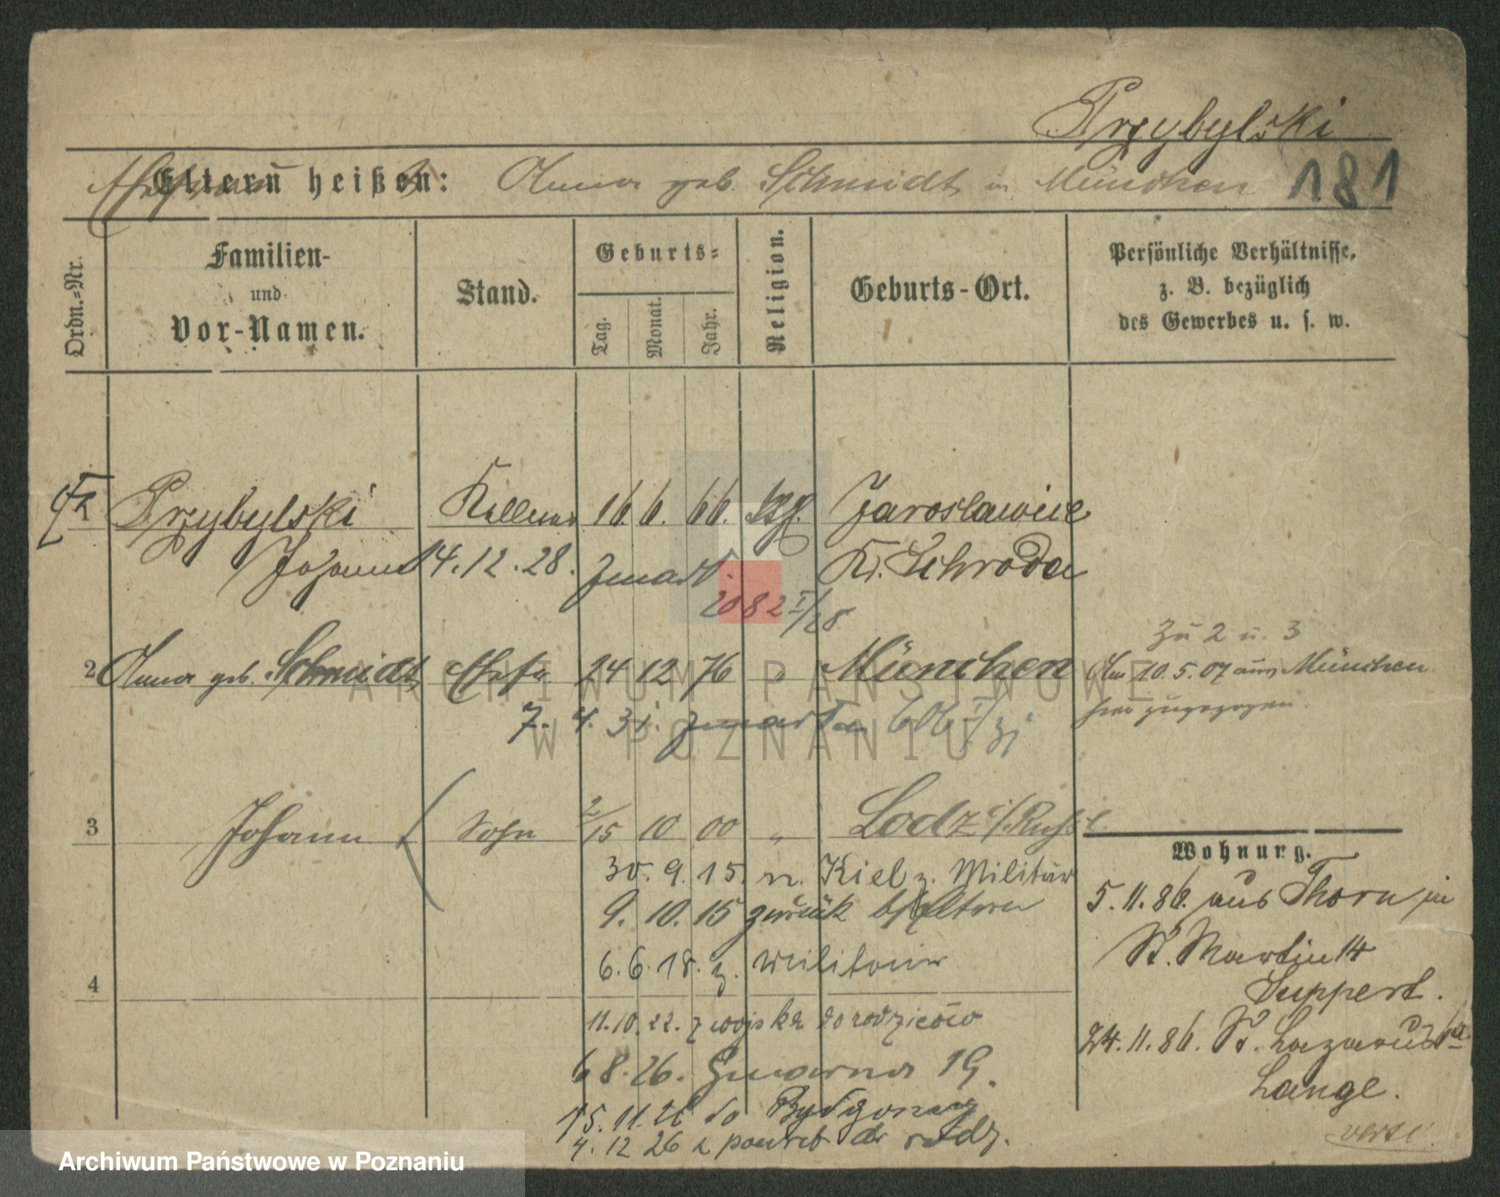 Przybylski
Eltern heißen: Anna geb. Schmidt in München 181
Ordn.-Nr.
Familien-
und
Vor-Namen.
Stand.
Geburts-
Tag. Monat. Jahr.
Religion.
Geburts-Ort.
Persönliche Verhältnisse,
z. B. bezüglich
des Gewerbes u. s. w.
Przybylski Kellner 16. 6. 66. Jaroslawiec
Johann 14.12.28. zmarł. Kr. Schroda
2082 I/28
Zu 2 u. 3
2 Anna geb. Schmidt Ehefr 24 12 76 " München Am 10.5.07 aus München
hier zugezogen.
7. 4. 31. zmarła 606 I/31
3 Johann Sohn 2/15 10 00 " Lodz i/Russl.
Wohnung.
30. 9. 15. n. Kiel z. Militär
5.11.86. aus Thorn in
9. 10. 15 zurück Eltern
St. Martin 14
6. 6. 18. z. Militair
4
Duppert.
11.10.22. z wojska do rodziców
24.11.86. St. Lazarus
6 8. 26. Gwarna 19.
Lange.
15. 11. 26 do Bydgoszcz
4. 12 26 z powrot do rodz.
verte.
ARCHIWUM PAŃSTWOWE
W POZNANIU
Archiwum Państwowe w Poznaniu